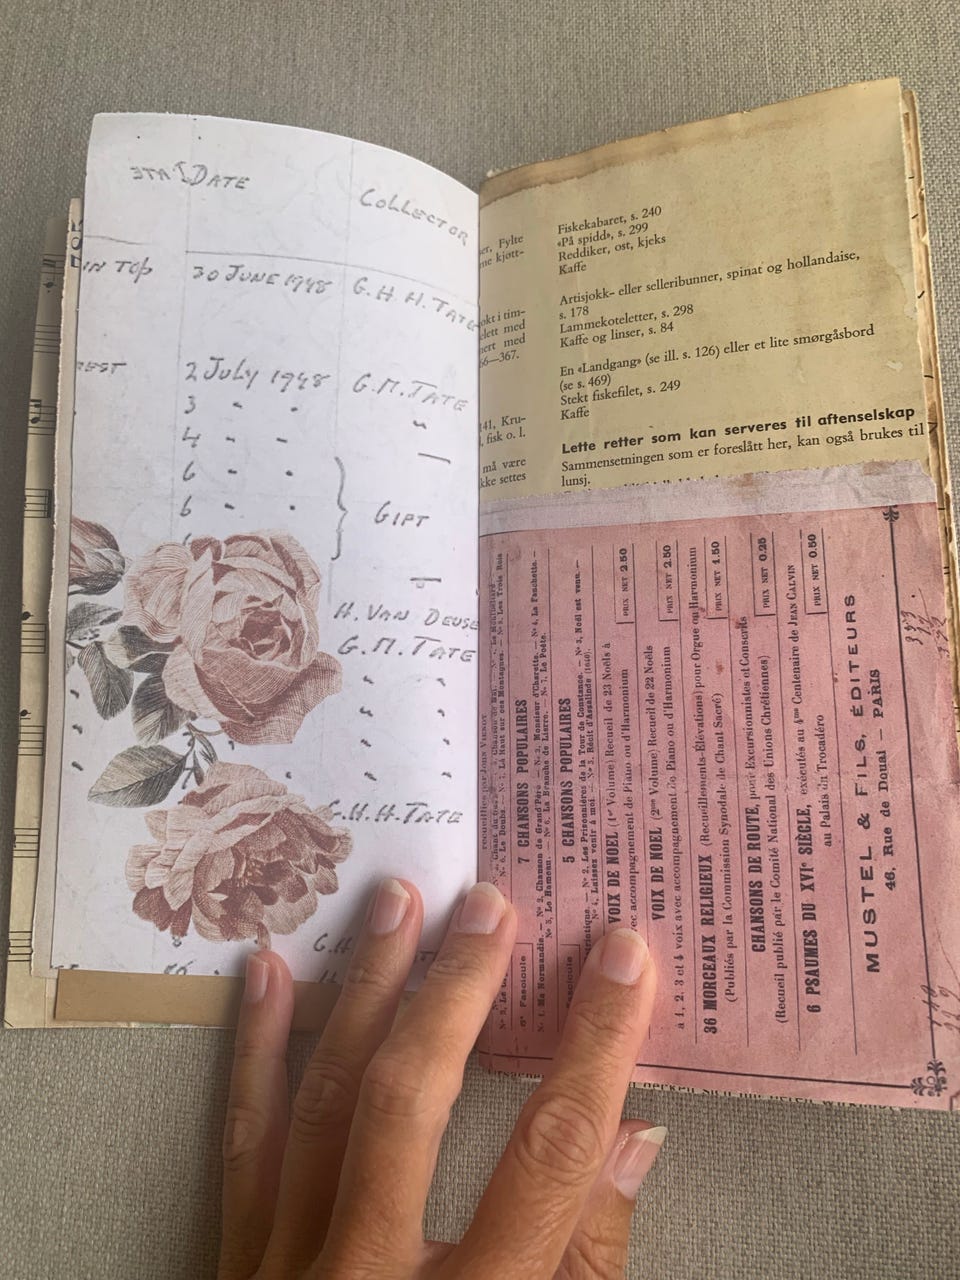 DATE
COLLECTOR
IN TOP 30 JUNE 1948 G. H. H. TATE
2 JULY 1948 G. M. TATE
3 " "
4 " "
6 " "
6 " "
GIFT
H. VAN DEUSE
G. M. TATE
G. H. H. TATE
er. Fylte
me kjøtt-
okt i tim-
elett med
nert med
66—367.
141, Kru-
l. fisk o. l.
må være
kke settes
Fiskekabaret, s. 240
«På spidd», s. 299
Reddiker, ost, kjeks
Kaffe
Artisjokk- eller selleribunner, spinat og hollandaise,
s. 178
Lammekoteletter, s. 298
Kaffe og linser, s. 84
En «Landgang» (se ill. s. 126) eller et lite smørgåsbord
(se s. 469)
Stekt fiskefilet, s. 249
Kaffe
Lette retter som kan serveres til aftenselskap
Sammensetningen som er foreslått her, kan også brukes til
lunsj.
recueillies par JOHN VIENOT
5e Fascicule 7 CHANSONS POPULAIRES
No 1. Ma Normandie. — No 2. Chanson de Grand'Père. — No 3. Monsieur d'Charette. — No 4. La Fanchette. —
No 5. Le Hameau. — No 6. La Branche de Lierre. — No 7. Le Poète.
Fascicule 5 CHANSONS POPULAIRES
No 2. Les Prisonnières de la Tour de Constance. — No 3. Noël est venu. —
No 4. Laissez venir à moi. — No 5. Récit d'Assalindé
VOIX DE NOEL (1er Volume) Recueil de 23 Noëls à
avec accompagnement de Piano ou d'Harmonium PRIX NET 2.50
VOIX DE NOEL (2me Volume) Recueil de 22 Noëls
à 1, 2, 3 et 4 voix avec accompagnement de Piano ou d'Harmonium PRIX NET 2.50
36 MORCEAUX RELIGIEUX (Recueillements-Élévations) pour Orgue ou Harmonium
(Publiés par la Commission Synodale de Chant Sacré) PRIX NET 1.50
CHANSONS DE ROUTE, pour Excursionnistes et Conscrits
(Recueil publié par le Comité National des Unions Chrétiennes) PRIX NET 0.25
6 PSAUMES DU XVIe SIÈCLE, exécutés au 4me Centenaire de JEAN CALVIN
au Palais du Trocadéro PRIX NET 0.50
MUSTEL & FILS, ÉDITEURS
46, Rue de Douai — PARIS